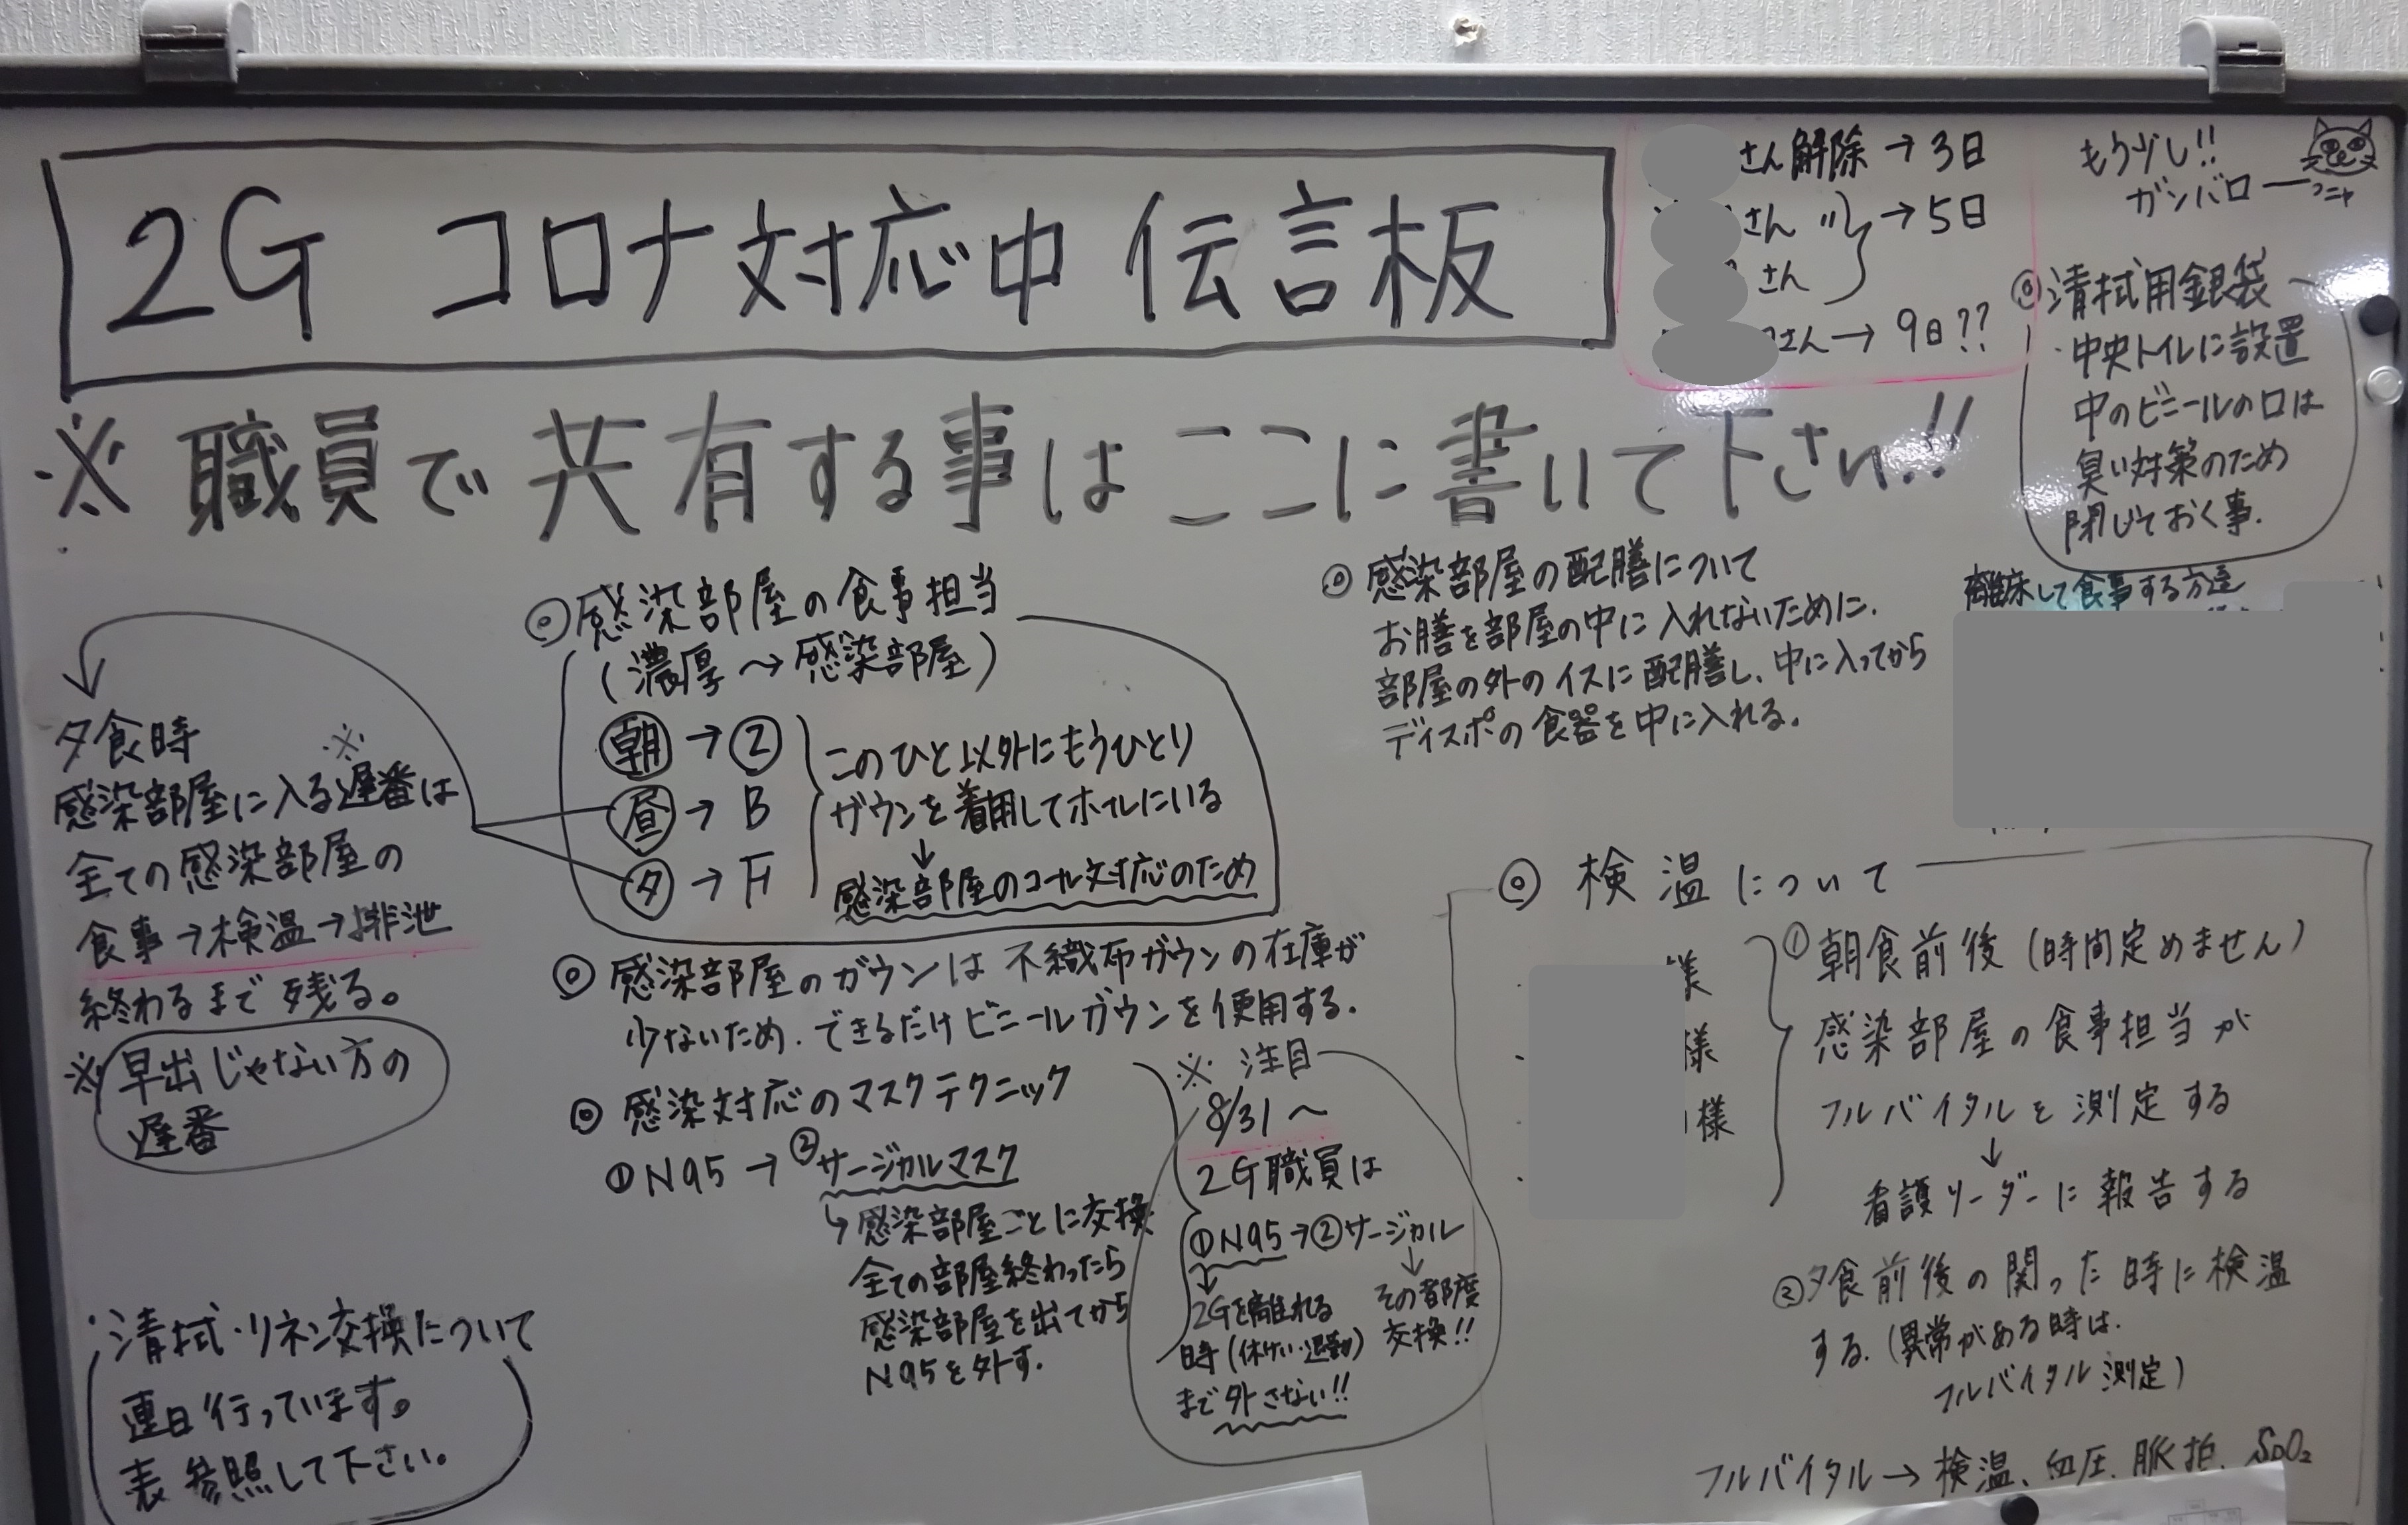 2G コロナ対応中 伝言板
さん解除→3日
さん 〃
さん
→5日
さん→9日??
もう少し!!
ガンバロー
※職員で共有する事はここに書いて下さい!!
◎清拭用銀袋
・中央トイレに設置
中のビニールの口は
臭い対策のため
閉じておく事.
離床して食事する方達
夕食時
※
感染部屋に入る遅番は
全ての感染部屋の
食事→検温→排泄
終わるまで残る。
※早出じゃない方の
遅番
◎感染部屋の食事担当
(濃厚→感染部屋)
朝→②
昼→B
夕→F
このひと以外にもうひとり
ガウンを着用してホールにいる
↓
感染部屋のコール対応のため
◎感染部屋の配膳について
お膳を部屋の中に入れないために.
部屋の外のイスに配膳し、中に入ってから
ディスポの食器を中に入れる。
◎感染部屋のガウンは不織布ガウンの在庫が
少ないため.できるだけビニールガウンを使用する.
◎感染対応のマスクテクニック
①N95→②サージカルマスク
↳感染部屋ごとに交換
全ての部屋終わったら
感染部屋を出てから
N95を外す.
※注目
8/31〜
2G職員は
①N95→②サージカル
↓
2Gを離れる
時(休けい・退勤)
まで外さない!!
↓
その都度
交換!!
◎検温について
様
様
様
①朝食前後(時間定めません)
感染部屋の食事担当が
フルバイタルを測定する
↓
看護リーダーに報告する
②夕食前後の関った時に検温
する.(異常がある時は.
フルバイタル測定)
フルバイタル→検温、血圧.脈拍.SpO₂
・清拭・リネン交換について
連日行っています。
表参照して下さい。